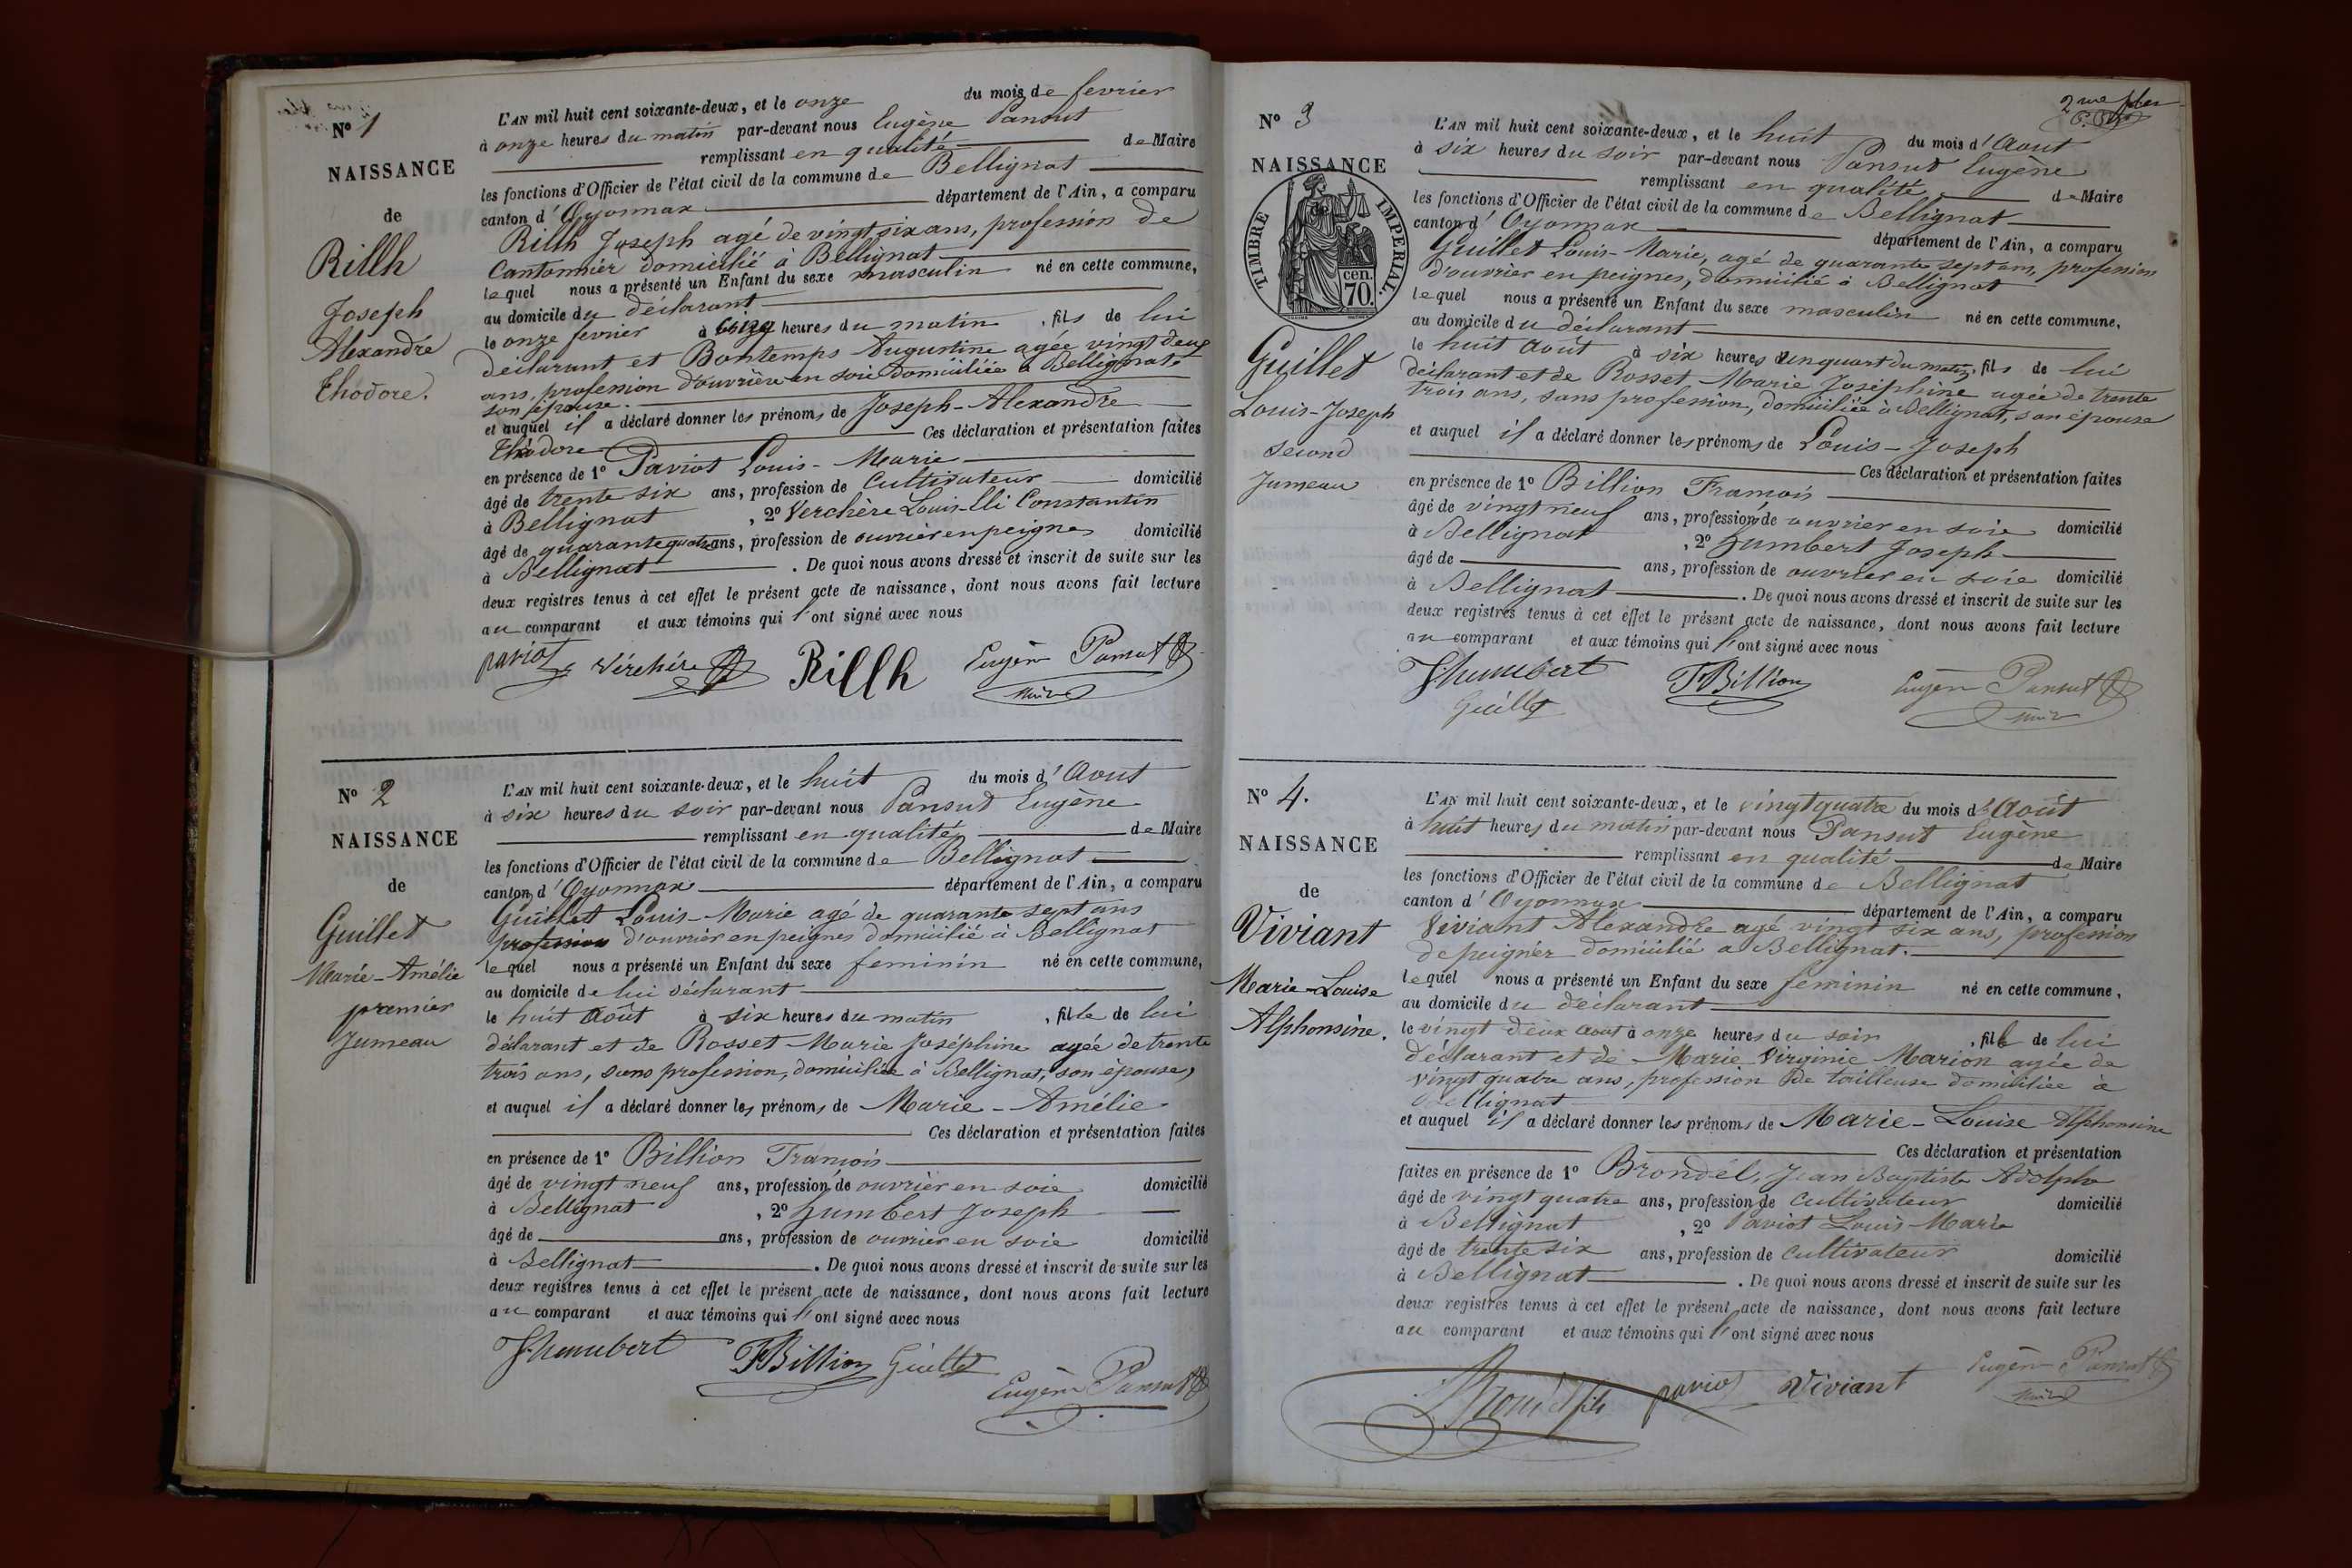 Nº 1
NAISSANCE
de
Rillh
Joseph
Alexandre
Thodore.
L'AN mil huit cent soixante-deux, et le onze du mois de fevrier
à onze heures du matin par-devant nous Eugène Pansut
remplissant en qualité de Maire
les fonctions d'Officier de l'état civil de la commune de Bellignat
canton d'Oyonnax département de l'Ain, a comparu
Rillh Joseph agé de vingt six ans, profession de
Cantonnier domicilié à Bellignat
lequel nous a présenté un Enfant du sexe masculin né en cette commune,
au domicile du déclarant
le onze fevrier à cinq heures du matin, fils de lui
déclarant et Bontemps Augustine agée vingt deux
ans, profession d'ouvrière en soie domiciliée à Bellignat,
son épouse.
et auquel il a déclaré donner les prénoms de Joseph-Alexandre
Thodore Ces déclaration et présentation faites
en présence de 1º Paviot Louis-Marie
âgé de trente six ans, profession de Cultivateur domicilié
à Bellignat, 2º Verchère Louis Constantin
âgé de quarante quatre ans, profession de ouvrier en peignes domicilié
à Bellignat. De quoi nous avons dressé et inscrit de suite sur les
deux registres tenus à cet effet le présent acte de naissance, dont nous avons fait lecture
au comparant et aux témoins qui l'ont signé avec nous
paviot Vérchére Rillh Eugène Pansut
Maire
Nº 2
NAISSANCE
de
Guillet
Marie-Amélie
premier
Jumeau
L'AN mil huit cent soixante-deux, et le huit du mois d'Aout
à six heures du soir par-devant nous Pansut Eugène
remplissant en qualité de Maire
les fonctions d'Officier de l'état civil de la commune de Bellignat
canton d'Oyonnax département de l'Ain, a comparu
Guillet Louis-Marie agé de quarante sept ans
profession d'ouvrier en peignes domicilié à Bellignat
lequel nous a présenté un Enfant du sexe feminin né en cette commune,
au domicile de lui déclarant
le huit Août à six heures du matin, fille de lui
déclarant et de Rosset Marie Joséphine agée de trente
trois ans, sans profession, domiciliée à Bellignat, son épouse,
et auquel il a déclaré donner les prénoms de Marie-Amélie
Ces déclaration et présentation faites
en présence de 1º Billion François
âgé de vingt neuf ans, profession de ouvrier en soie domicilié
à Bellignat, 2º Humbert Joseph
âgé de ans, profession de ouvrier en soie domicilié
à Bellignat. De quoi nous avons dressé et inscrit de suite sur les
deux registres tenus à cet effet le présent acte de naissance, dont nous avons fait lecture
au comparant et aux témoins qui l'ont signé avec nous
J humbert F Billion Guillet
Eugène Pansut
Nº 3
NAISSANCE
de
TIMBRE IMPERIAL.
70. cen.
Guillet
Louis-Joseph
second
Jumeau
2me
L'AN mil huit cent soixante-deux, et le huit du mois d'Aout
à six heures du soir par-devant nous Pansut Eugène
remplissant en qualité de Maire
les fonctions d'Officier de l'état civil de la commune de Bellignat
canton d'Oyonnax département de l'Ain, a comparu
Guillet Louis-Marie, agé de quarante sept ans, profession
d'ouvrier en peignes, domicilié à Bellignat
lequel nous a présenté un Enfant du sexe masculin né en cette commune,
au domicile du déclarant
le huit Août à six heures un quart du matin, fils de lui
déclarant et de Rosset Marie Joséphine agée de trente
trois ans, sans profession, domiciliée à Bellignat, son épouse
et auquel il a déclaré donner les prénoms de Louis-Joseph
Ces déclaration et présentation faites
en présence de 1º Billion François
âgé de vingt neuf ans, profession de ouvrier en soie domicilié
à Bellignat, 2º Humbert Joseph
âgé de ans, profession de ouvrier en soie domicilié
à Bellignat. De quoi nous avons dressé et inscrit de suite sur les
deux registres tenus à cet effet le présent acte de naissance, dont nous avons fait lecture
au comparant et aux témoins qui l'ont signé avec nous
J humbert F Billion Eugène Pansut
Guillet Maire
Nº 4.
NAISSANCE
de
Viviant
Marie-Louise
Alphonsine.
L'AN mil huit cent soixante-deux, et le vingt quatre du mois d'Août
à huit heures du matin par-devant nous Pansut Eugène
remplissant en qualité de Maire
les fonctions d'Officier de l'état civil de la commune de Bellignat
canton d'Oyonnax département de l'Ain, a comparu
Viviant Alexandre agé vingt six ans, profession
de peignér domicilié a Bellignat.
lequel nous a présenté un Enfant du sexe feminin né en cette commune,
au domicile du déclarant
le vingt deux aout à onze heures du soir, fille de lui
déclarant et de Marie Virginie Marion agée de
vingt quatre ans, profession de tailleuse domiciliée à
Bellignat
et auquel il a déclaré donner les prénoms de Marie-Louise Alphonsine
Ces déclaration et présentation
faites en présence de 1º Brondél, Jean Baptiste Adolphe
âgé de vingt quatre ans, profession de Cultivateur domicilié
à Bellignat, 2º Paviot Louis-Marie
âgé de trente six ans, profession de Cultivateur domicilié
à Bellignat. De quoi nous avons dressé et inscrit de suite sur les
deux registres tenus à cet effet le présent acte de naissance, dont nous avons fait lecture
au comparant et aux témoins qui l'ont signé avec nous
paviot Viviant Eugène Pansut
Maire